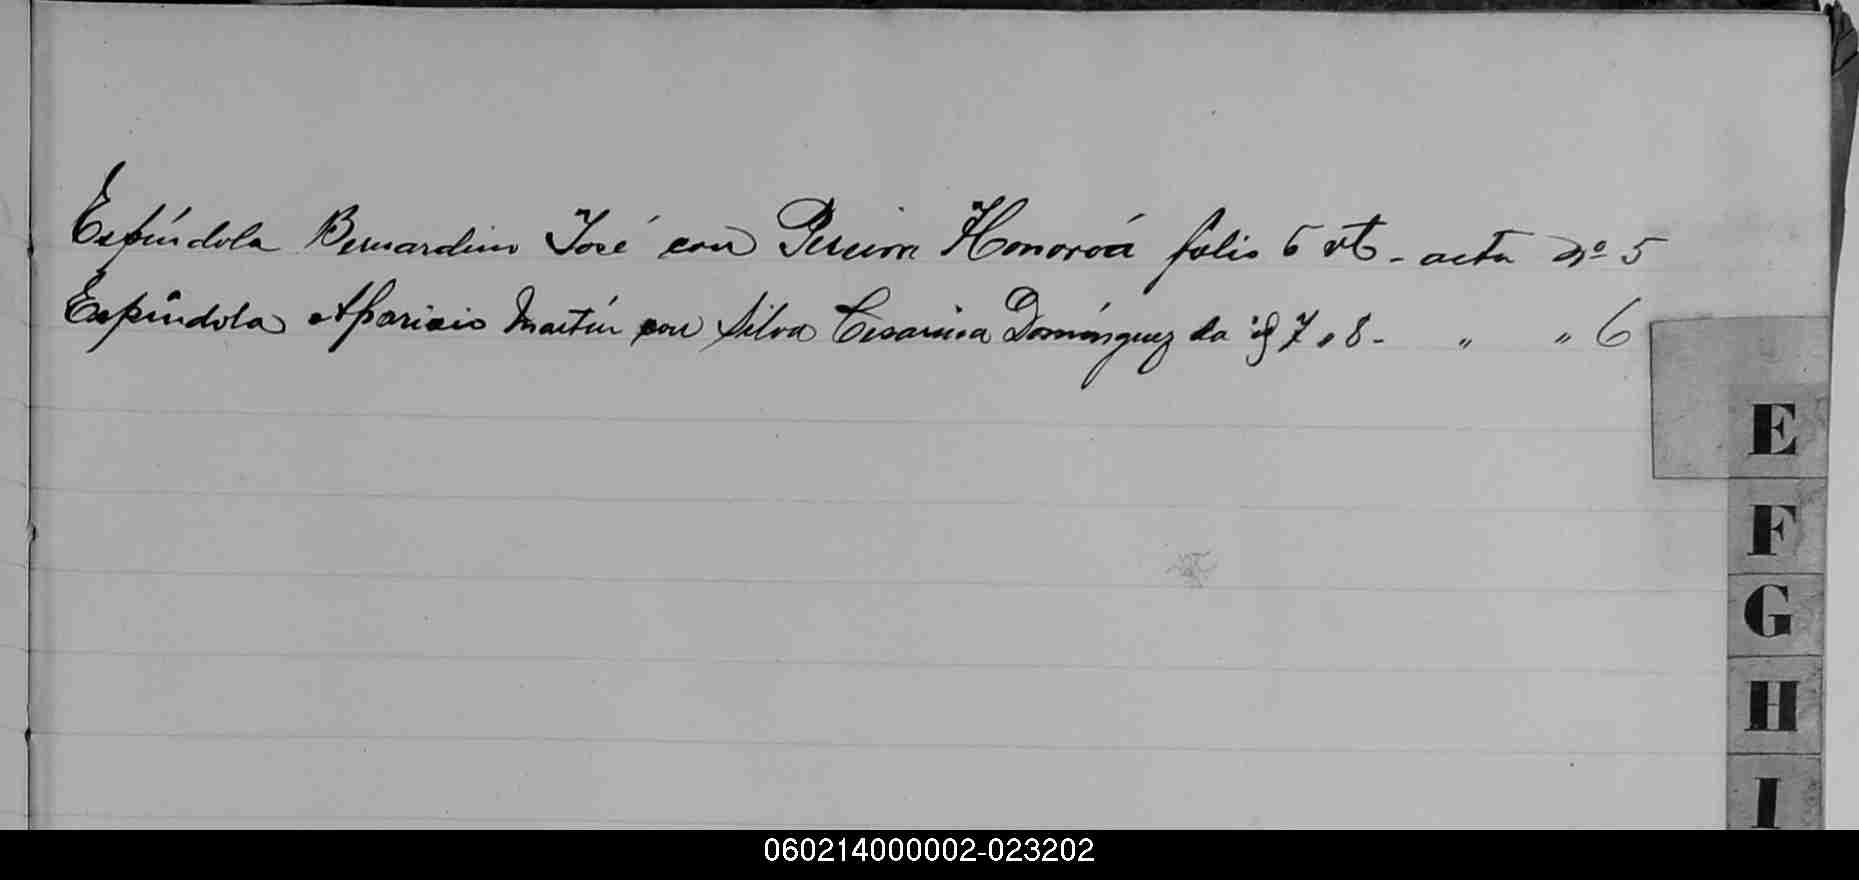 Espíndola Bernardino José con Pereira Honoroá folio 6 vto - acta Nº 5
Espíndola Aparicio Martín con Silva Cesarina Domínguez da 7 " 8 - " " 6
E
F
G
H
I
060214000002-023202